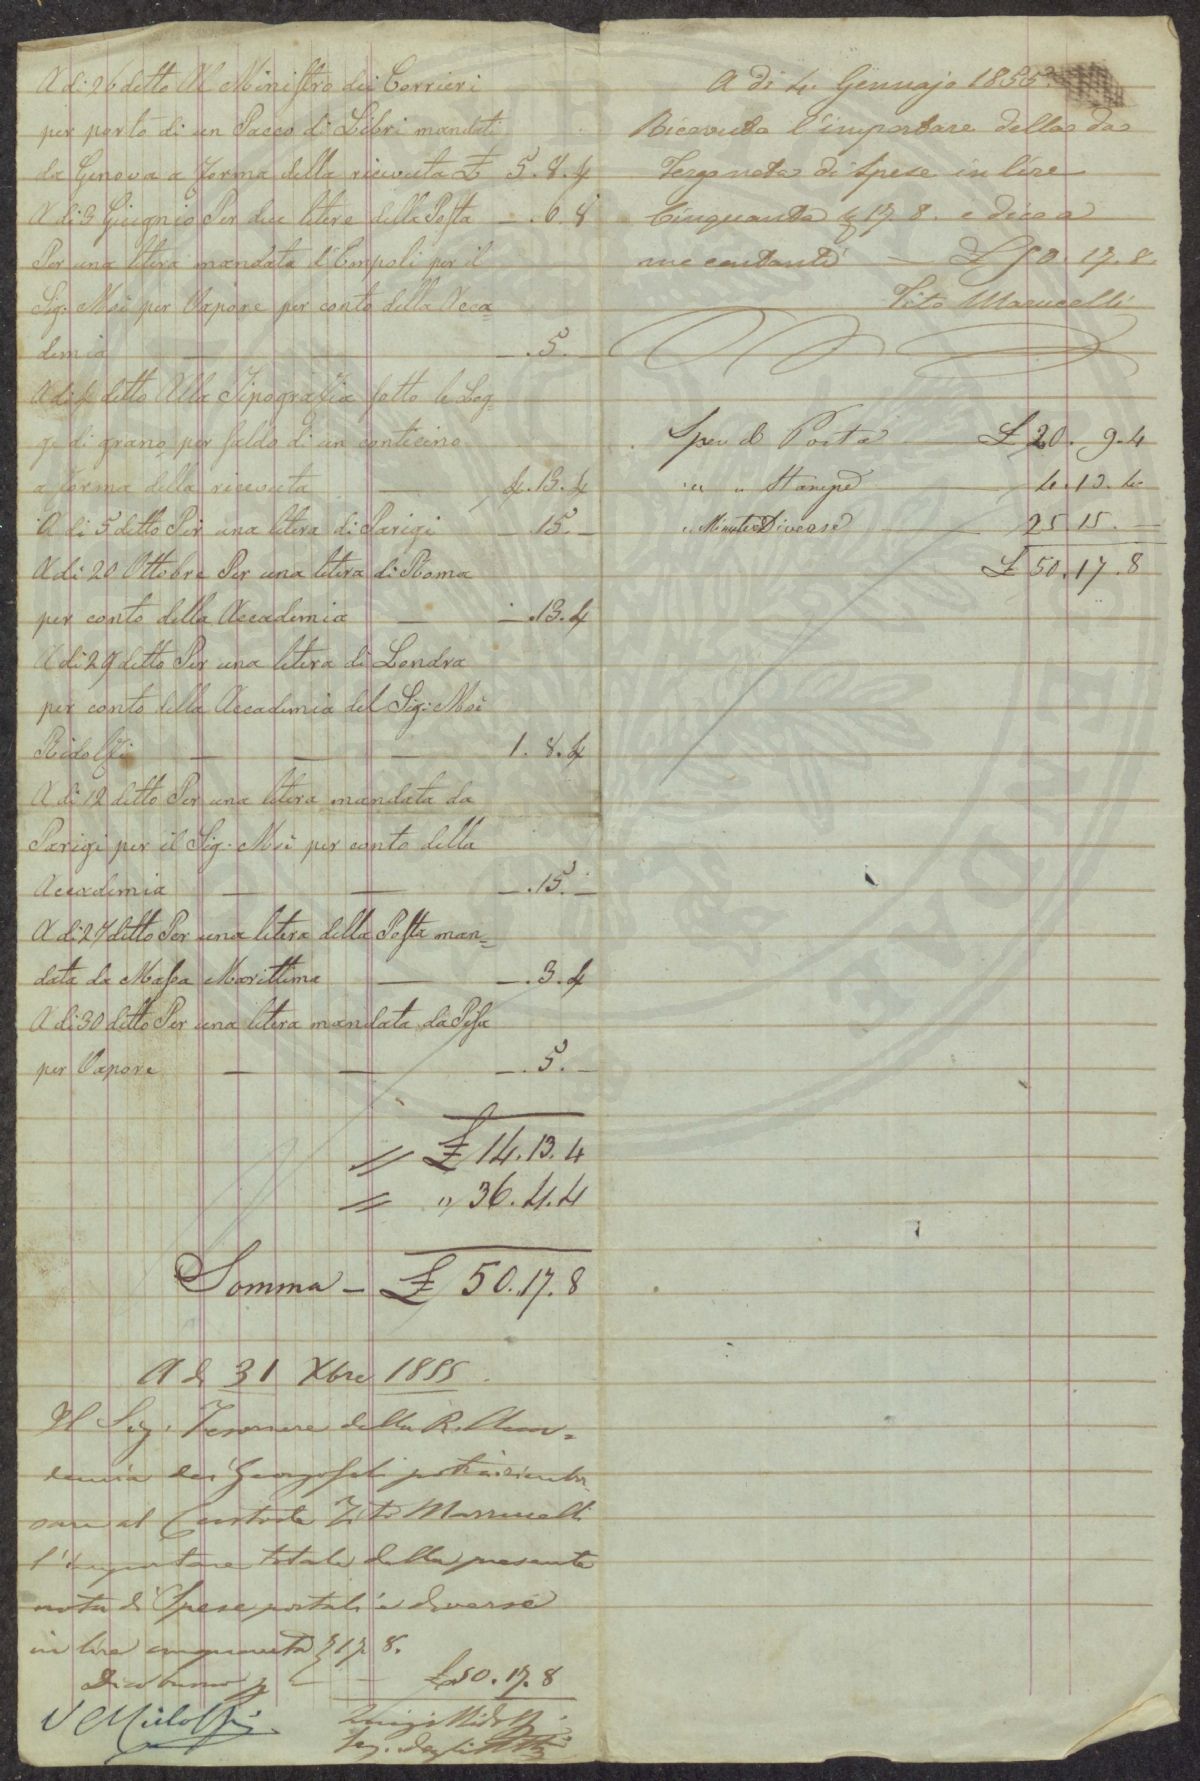 A di 26 detto Al Ministro dei Corrieri
per porto di un Pacco di Libri mandati
da Genova a forma della ricevuta £ 5.8.4
A di 3 Giugnio Per due litere della Posta — .6.8
Per una litera mandata d'Empoli per il
Sig. Msè per Vapore per conto della Acca=
demia — .5.—
A di detto Alla Tipografia sotto le Log=
ge di grano per saldo di un conticino
a forma della ricevuta — 4.13.4
A di 5 detto Per una litera di Parigi — .15.—
A di 20 Ottobre Per una litera di Roma
per conto della Accademia — — .13.4
A di 29 detto Per una litera di Londra
per conto della Accademia del Sig: Msè
Ridolfi — — — 1.8.4
A di 12 detto Per una litera mandata da
Parigi per il Sig. Msè per conto della
Accademia — — — .15.—
A di 27 detto Per una litera della Posta man=
data da Massa Marittima — — .3.4
A di 30 detto Per una litera mandata da Pisa
per Vapore — — — .5.—
// £ 14.13.4
// " 36.4.4
Somma — £ 50.17.8
A di 31 Xbre 1855.
Il Sig. Tesoriere della R. Acca=
demia dei Georgofili potrà rimbor
sare al Custode Tito Marucelli
l'importare totale della presente
nota di Spese postali e diverse
in lire cinquanta 17 8.
Dico — £50.17.8
V C Ridolfi
Luigi Ridolfi
Seg. degli Atti
A di 4 Gennajo 1855
Ricevuto l'importare della da
Tergo nota di spese in lire
Cinquanta 17 8. e dico a
me contanti — £ 50.17.8
Tito Marucelli
Spese di Posta £ 20. 9.4
" " Stampe 4.13.4
" Minute Diverse — 25.15.—
£ 50.17.8